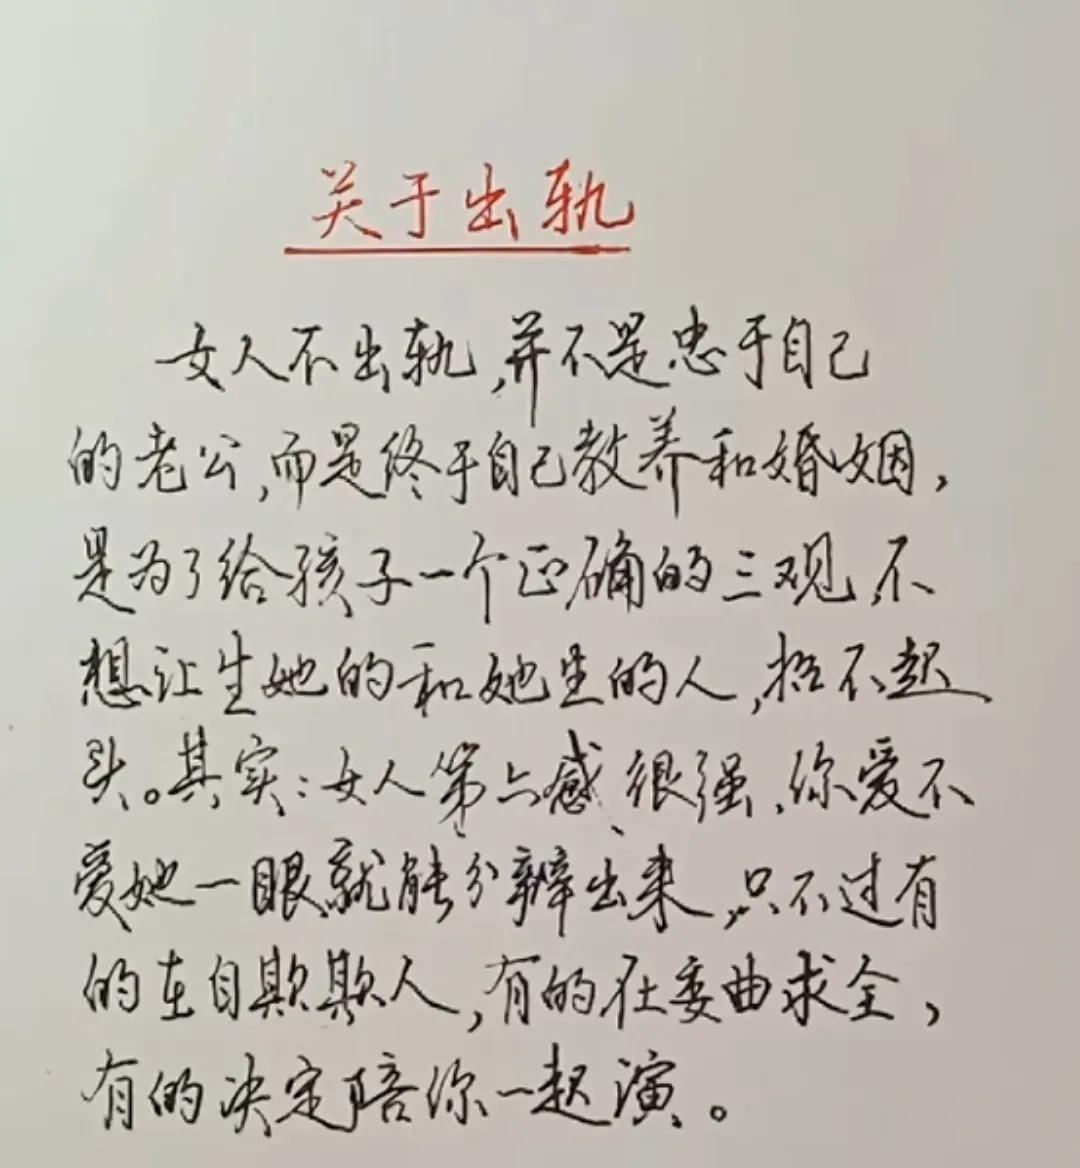 关于出轨
女人不出轨,并不是忠于自己
的老公,而是终于自己教养和婚姻,
是为了给孩子一个正确的三观,不
想让生她的和她生的人,抬不起
头。其实:女人第六感很强,你爱不
爱她一眼就能分辨出来,只不过有
的在自欺欺人,有的在委曲求全,
有的决定陪你一起演。